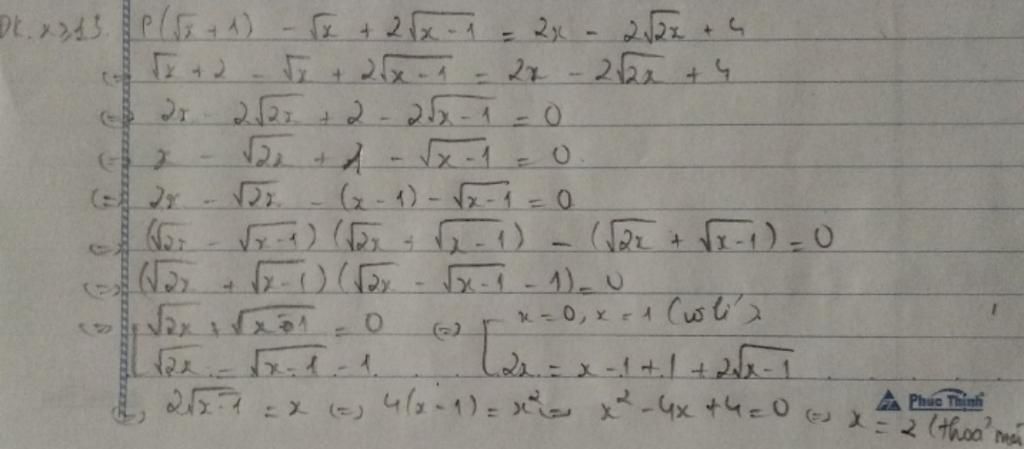 ĐK: x ≥ 1. P(√x + 1) - √x + 2√(x-1) = 2x - 2√(2x) + 4
(=) √x + 2 - √x + 2√(x-1) = 2x - 2√(2x) + 4
(=) 2x - 2√(2x) + 2 - 2√(x-1) = 0
(=) x - √(2x) + 1 - √(x-1) = 0
(=) 2x - √(2x) - (x-1) - √(x-1) = 0
(=) (√(2x) - √(x-1)) (√(2x) + √(x-1)) - (√(2x) + √(x-1)) = 0
(=) (√(2x) + √(x-1)) (√(2x) - √(x-1) - 1) = 0
(=) [ √(2x) + √(x-1) = 0 (=) [ x = 0, x = 1 (vô lí)
√(2x) = √(x-1) - 1 2x = x - 1 + 1 + 2√(x-1)
(=) 2√(x-1) = x (=) 4(x-1) = x² (=) x² - 4x + 4 = 0 (=) x = 2 (thoả mãn
Phúc Thịnh